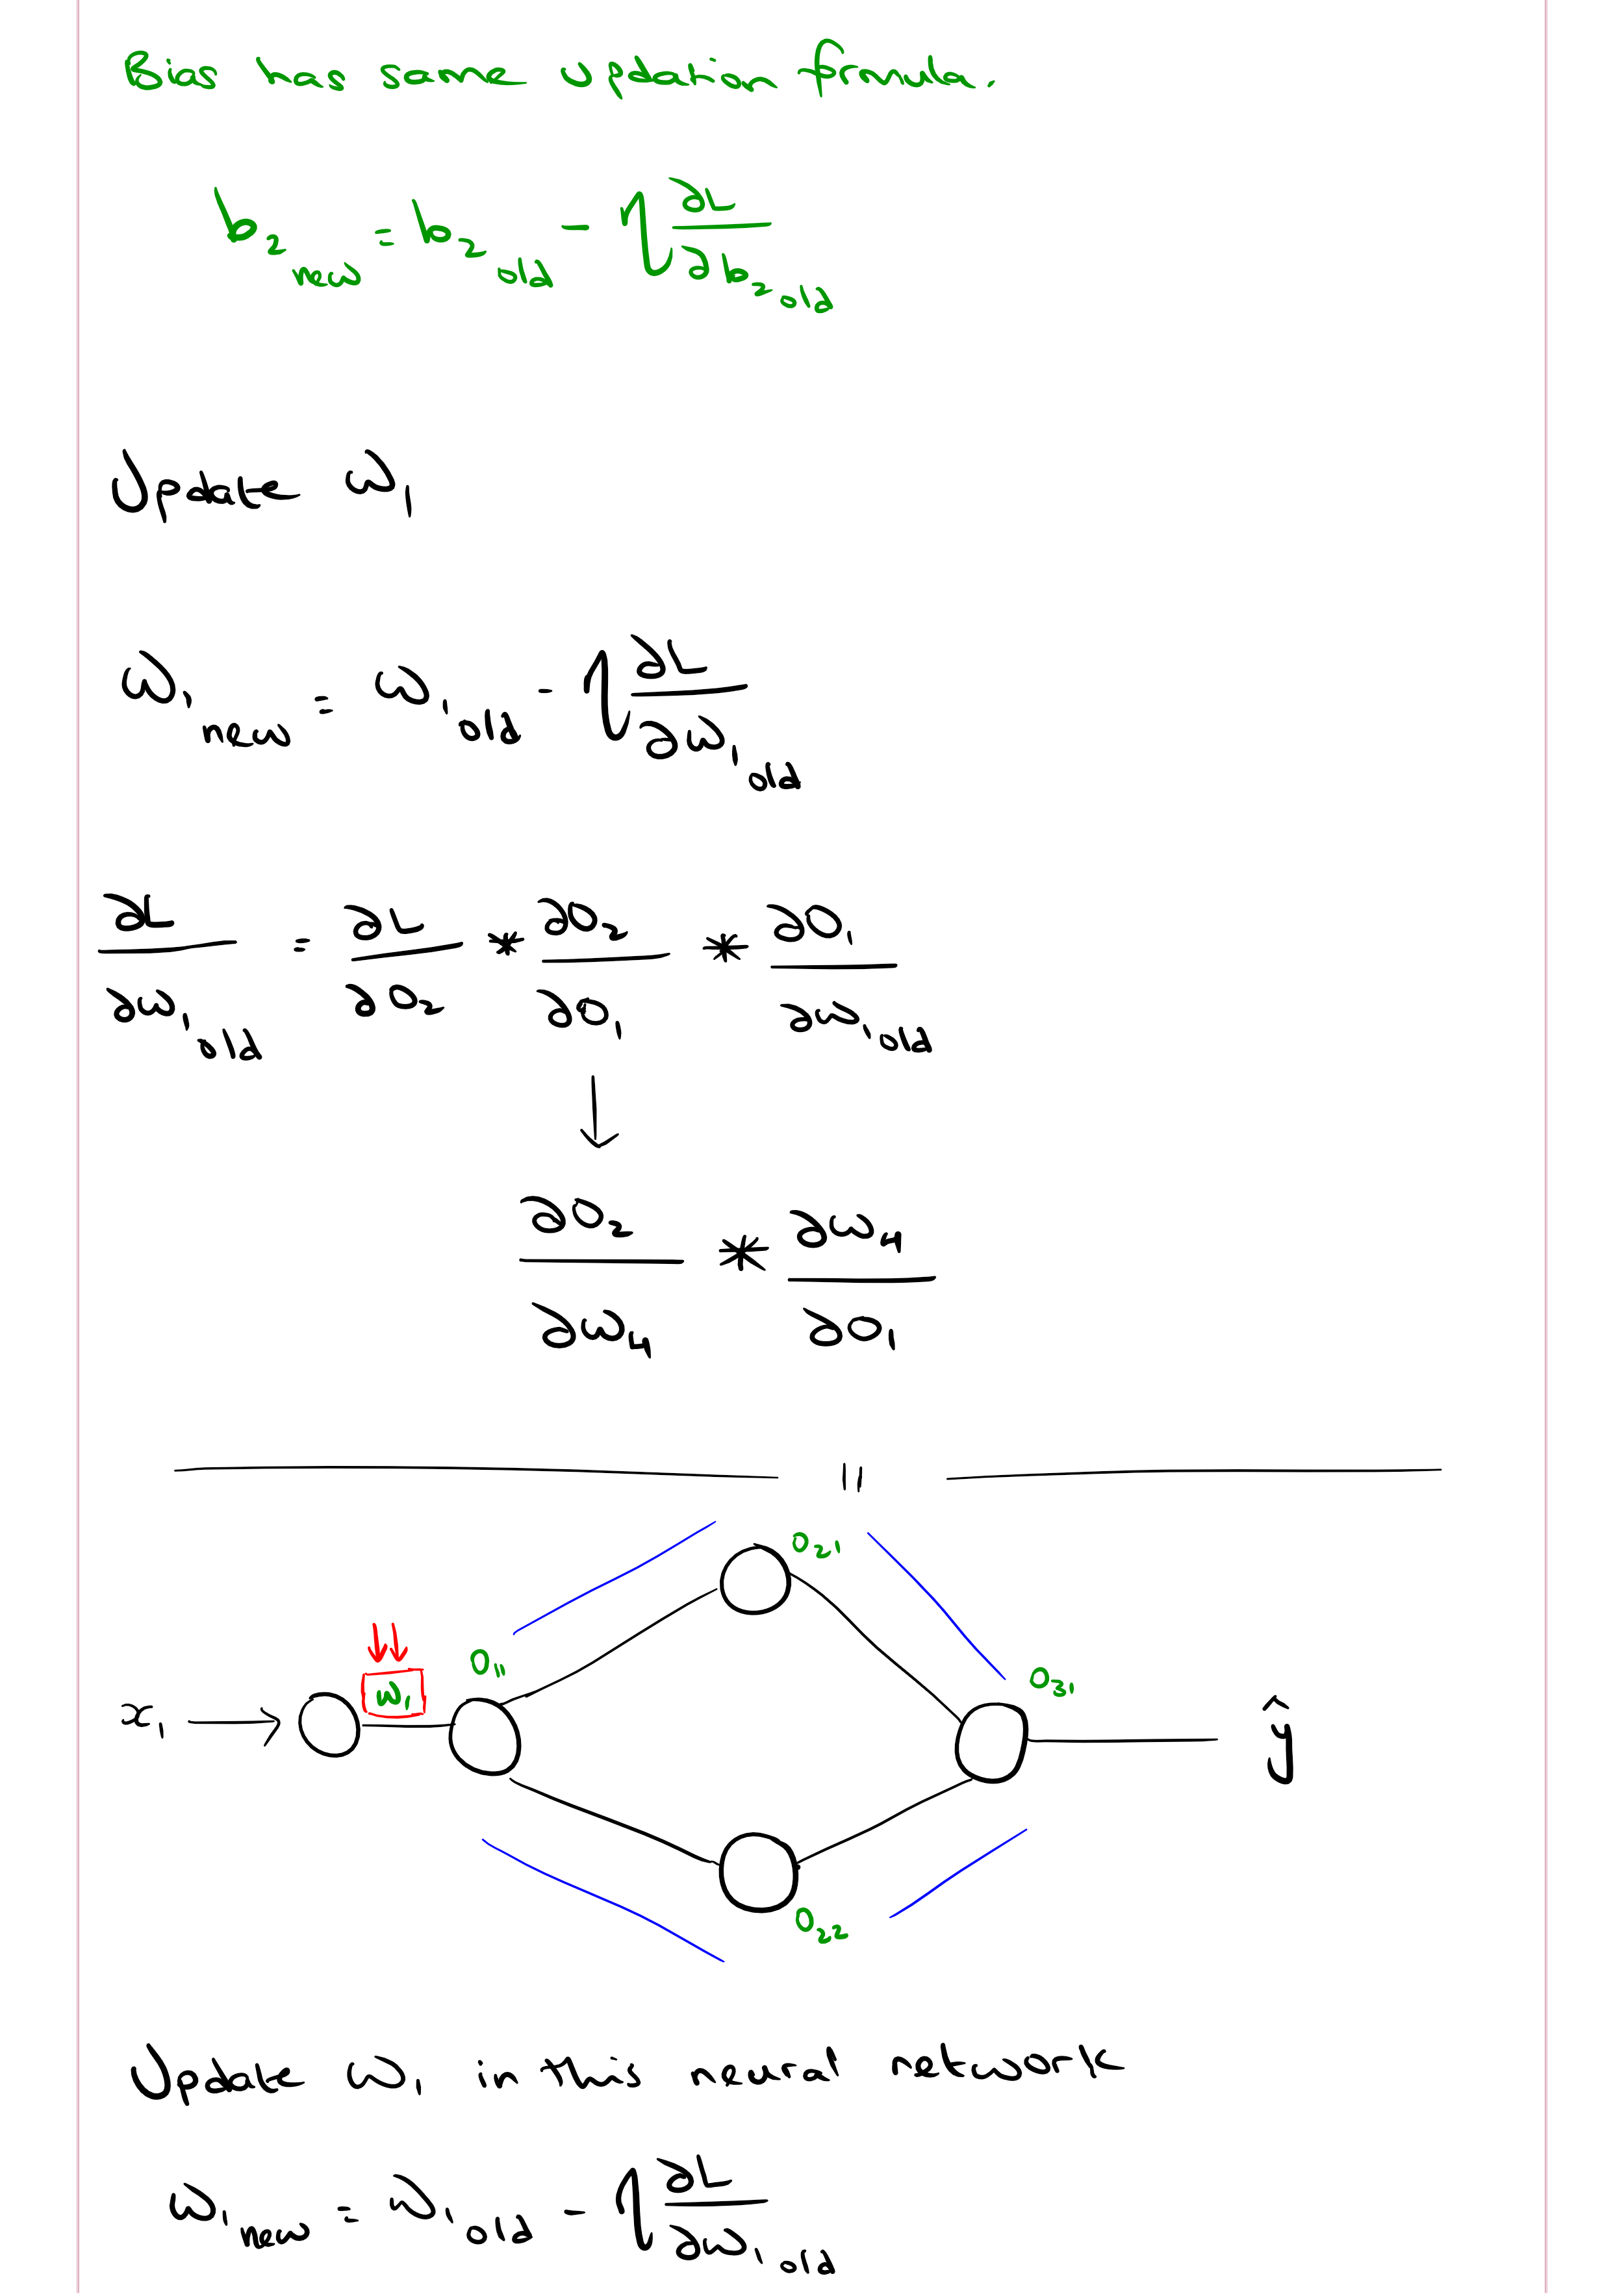 Bias has same updation formula.
b₂ new = b₂ old - η ∂L / ∂b₂ old
Update ω₁
ω₁ new = ω₁ old - η ∂L / ∂ω₁ old
∂L / ∂ω₁ old = ∂L / ∂O₂ * ∂O₂ / ∂O₁ * ∂O₁ / ∂ω₁ old
↓
∂O₂ / ∂ω₄ * ∂ω₄ / ∂O₁
||
O₂₁
O₁₁
ω₁
O₃₁
x₁
ŷ
O₂₂
Update ω₁ in this neural network
ω₁ new = ω₁ old - η ∂L / ∂ω₁ old